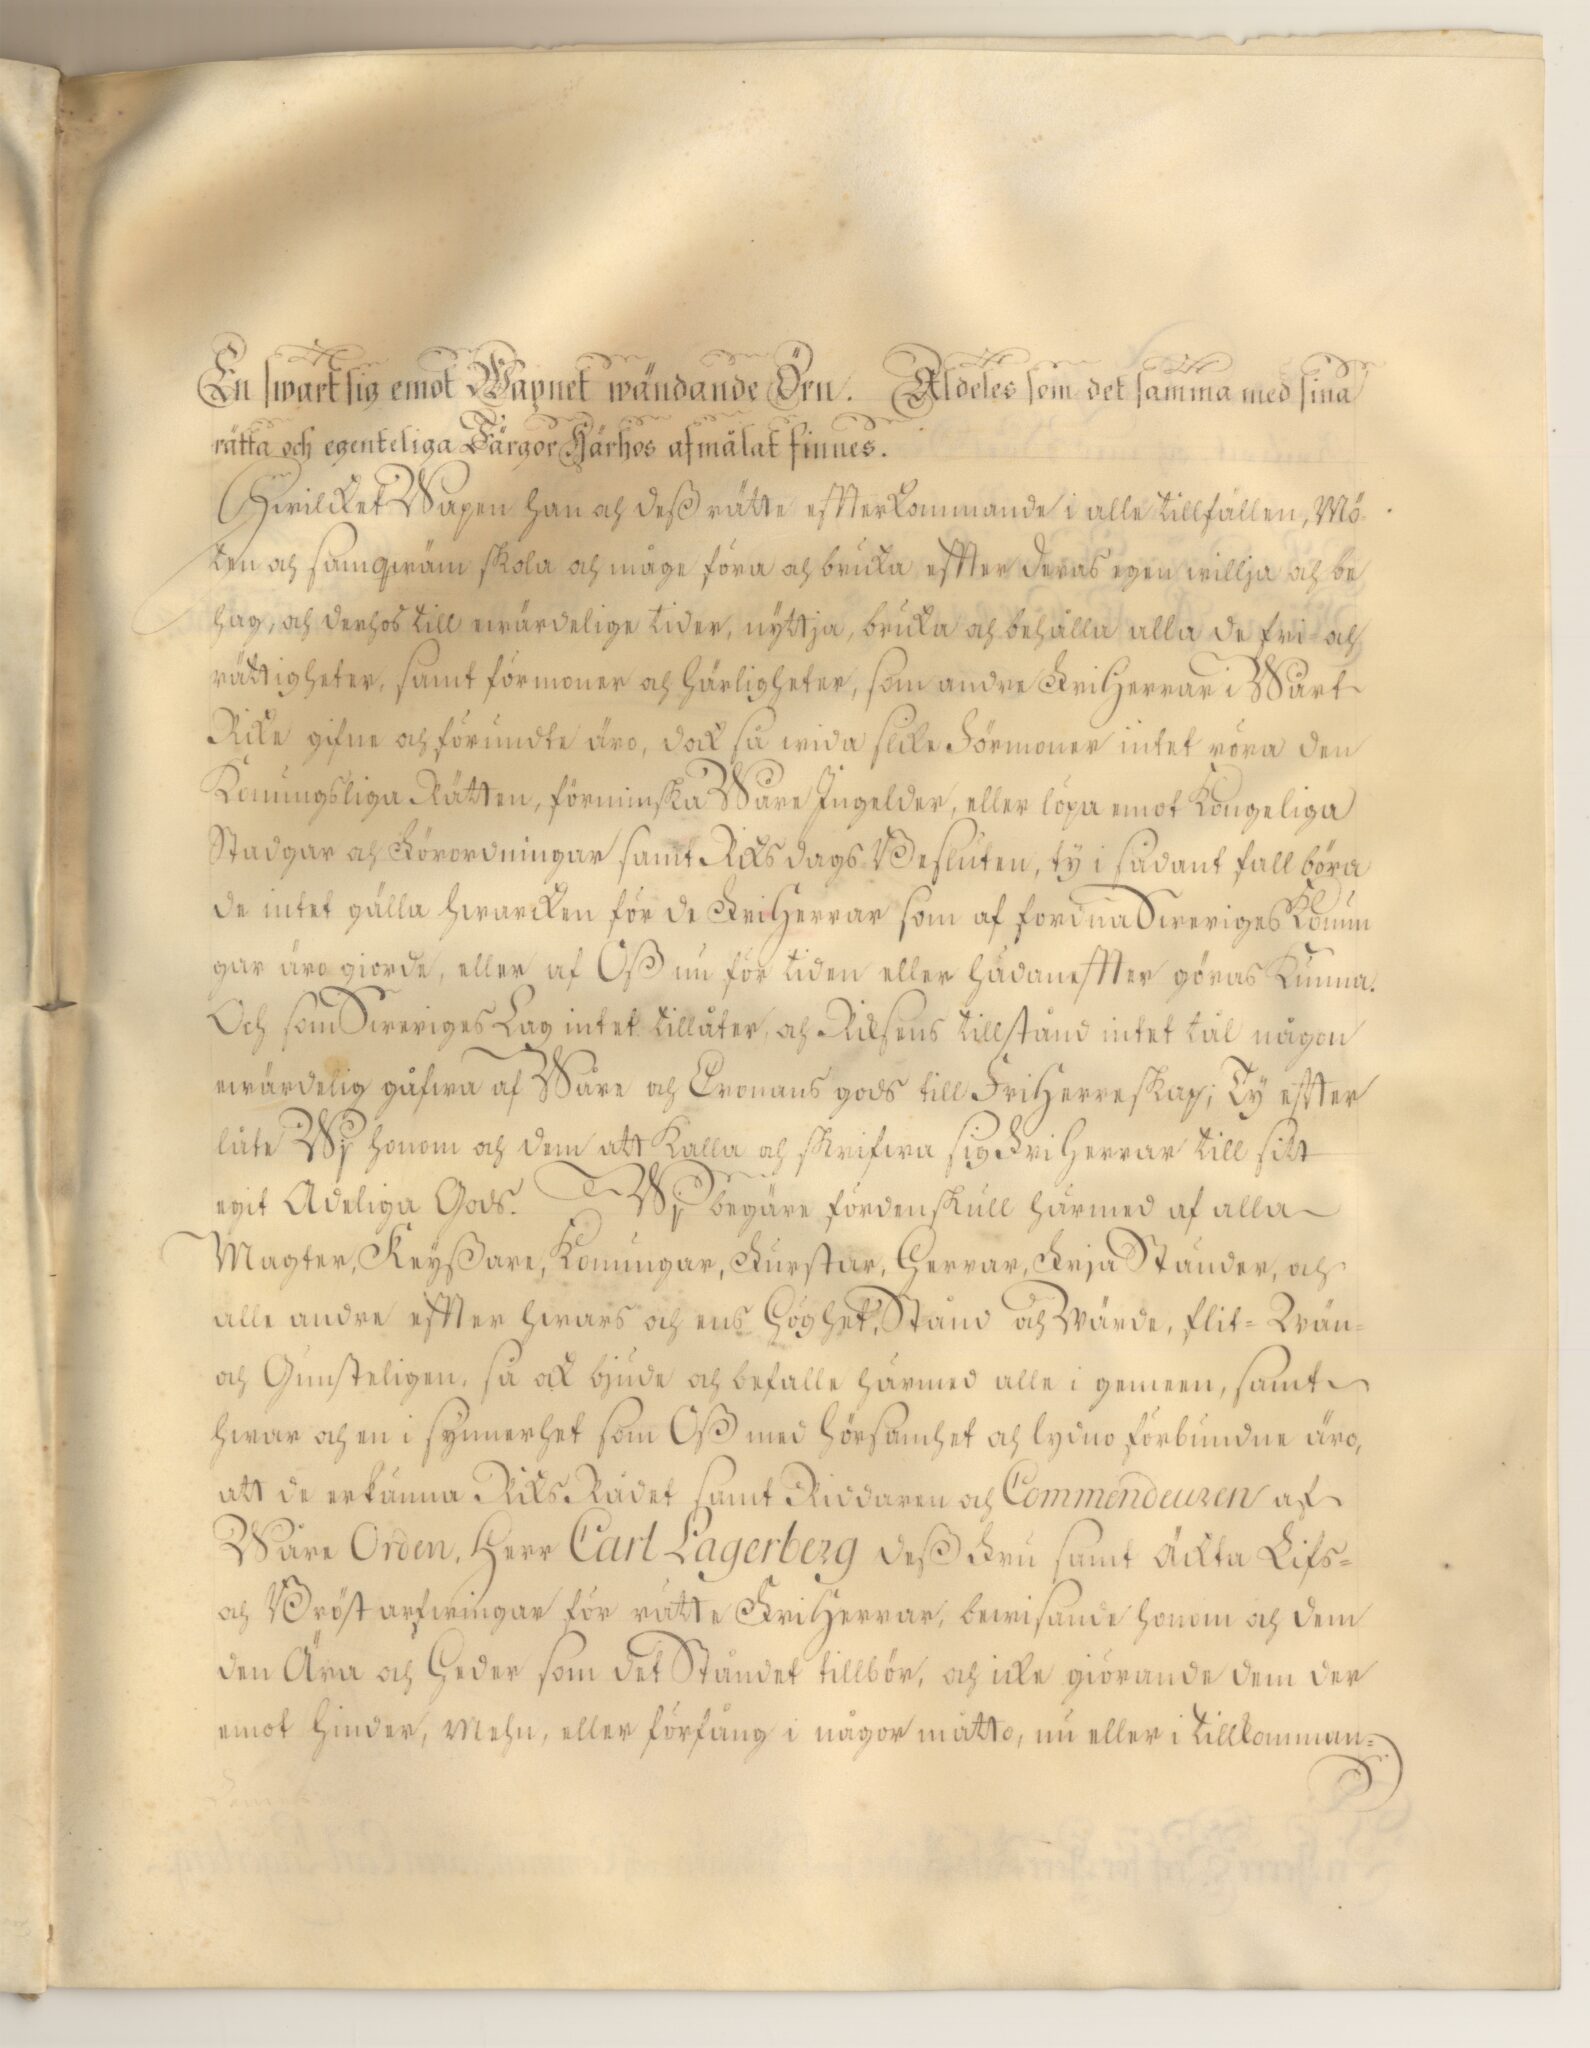 En swart sig emot Wapnet wändande Örn. Aldeles som det samma med sina
rätta och egenteliga Färgor Härhos afmålat finnes.
Hwilcket Wapen han och deß rätte effterkommande i alle tillfällen, Mö-
ten och samqwäm skola och måge föra och bruka effter deras egen willja och be
hag, och derhos till ewärdelige tider, nyttja, bruka och behålla alla de fri- och
rättigheter, samt förmoner och härligheter, som andre FriHerrar i Wårt
Rike gifne och förundte äro, dock så wida slike Förmoner intet röra den
Konungsliga Rätten, förminska Wåre Ingelder, eller löpa emot Kongeliga
Stadgar och Förordningar samt Riksdags Besluten, ty i sådant fall böra
de intet gälla hwarcken för de FriHerrar som af fordna Sweriges Konun
gar äro giorde, eller af Oß nu för tiden eller hädaneffter göras kunna.
Och som Sweriges Lag intet tillåter, och Riksens tillstånd intet tål någon
ewärdelig gåfwa af Wåre och Cronans gods till FriHerreskap; Ty effter
låte Wÿ honom och dem att kalla och skrifwa sig FriHerrar till sitt
egit Adeliga Gods. Wÿ begäre fördenskull härmed af alla
Magter, Keyßare, Konungar, Furstar, Herrar, Frja Ständer, och
alle andre effter hwars och ens Höghet, Stånd och Wärde, flit- Wän-
och Gunsteligen, så ock bjude och befalle härmed alle i gemeen, samt
hwar och en i synnerhet som Oß med hörsamhet och lydno förbundne äro,
att de erkänna Riks Rådet samt Riddaren och Commendeuren af
Wåre Orden, Herr Carl Lagerberg deß Fru samt Äckta Lifs-
och Bröstarfwingar för rätte FriHerrar, bewisande honom och dem
den Ära och Heder som det Ståndet tillhör, och icke giörande dem der
emot hinder, Mehn, eller förfång i någor måtto, nu eller i tillkomman-